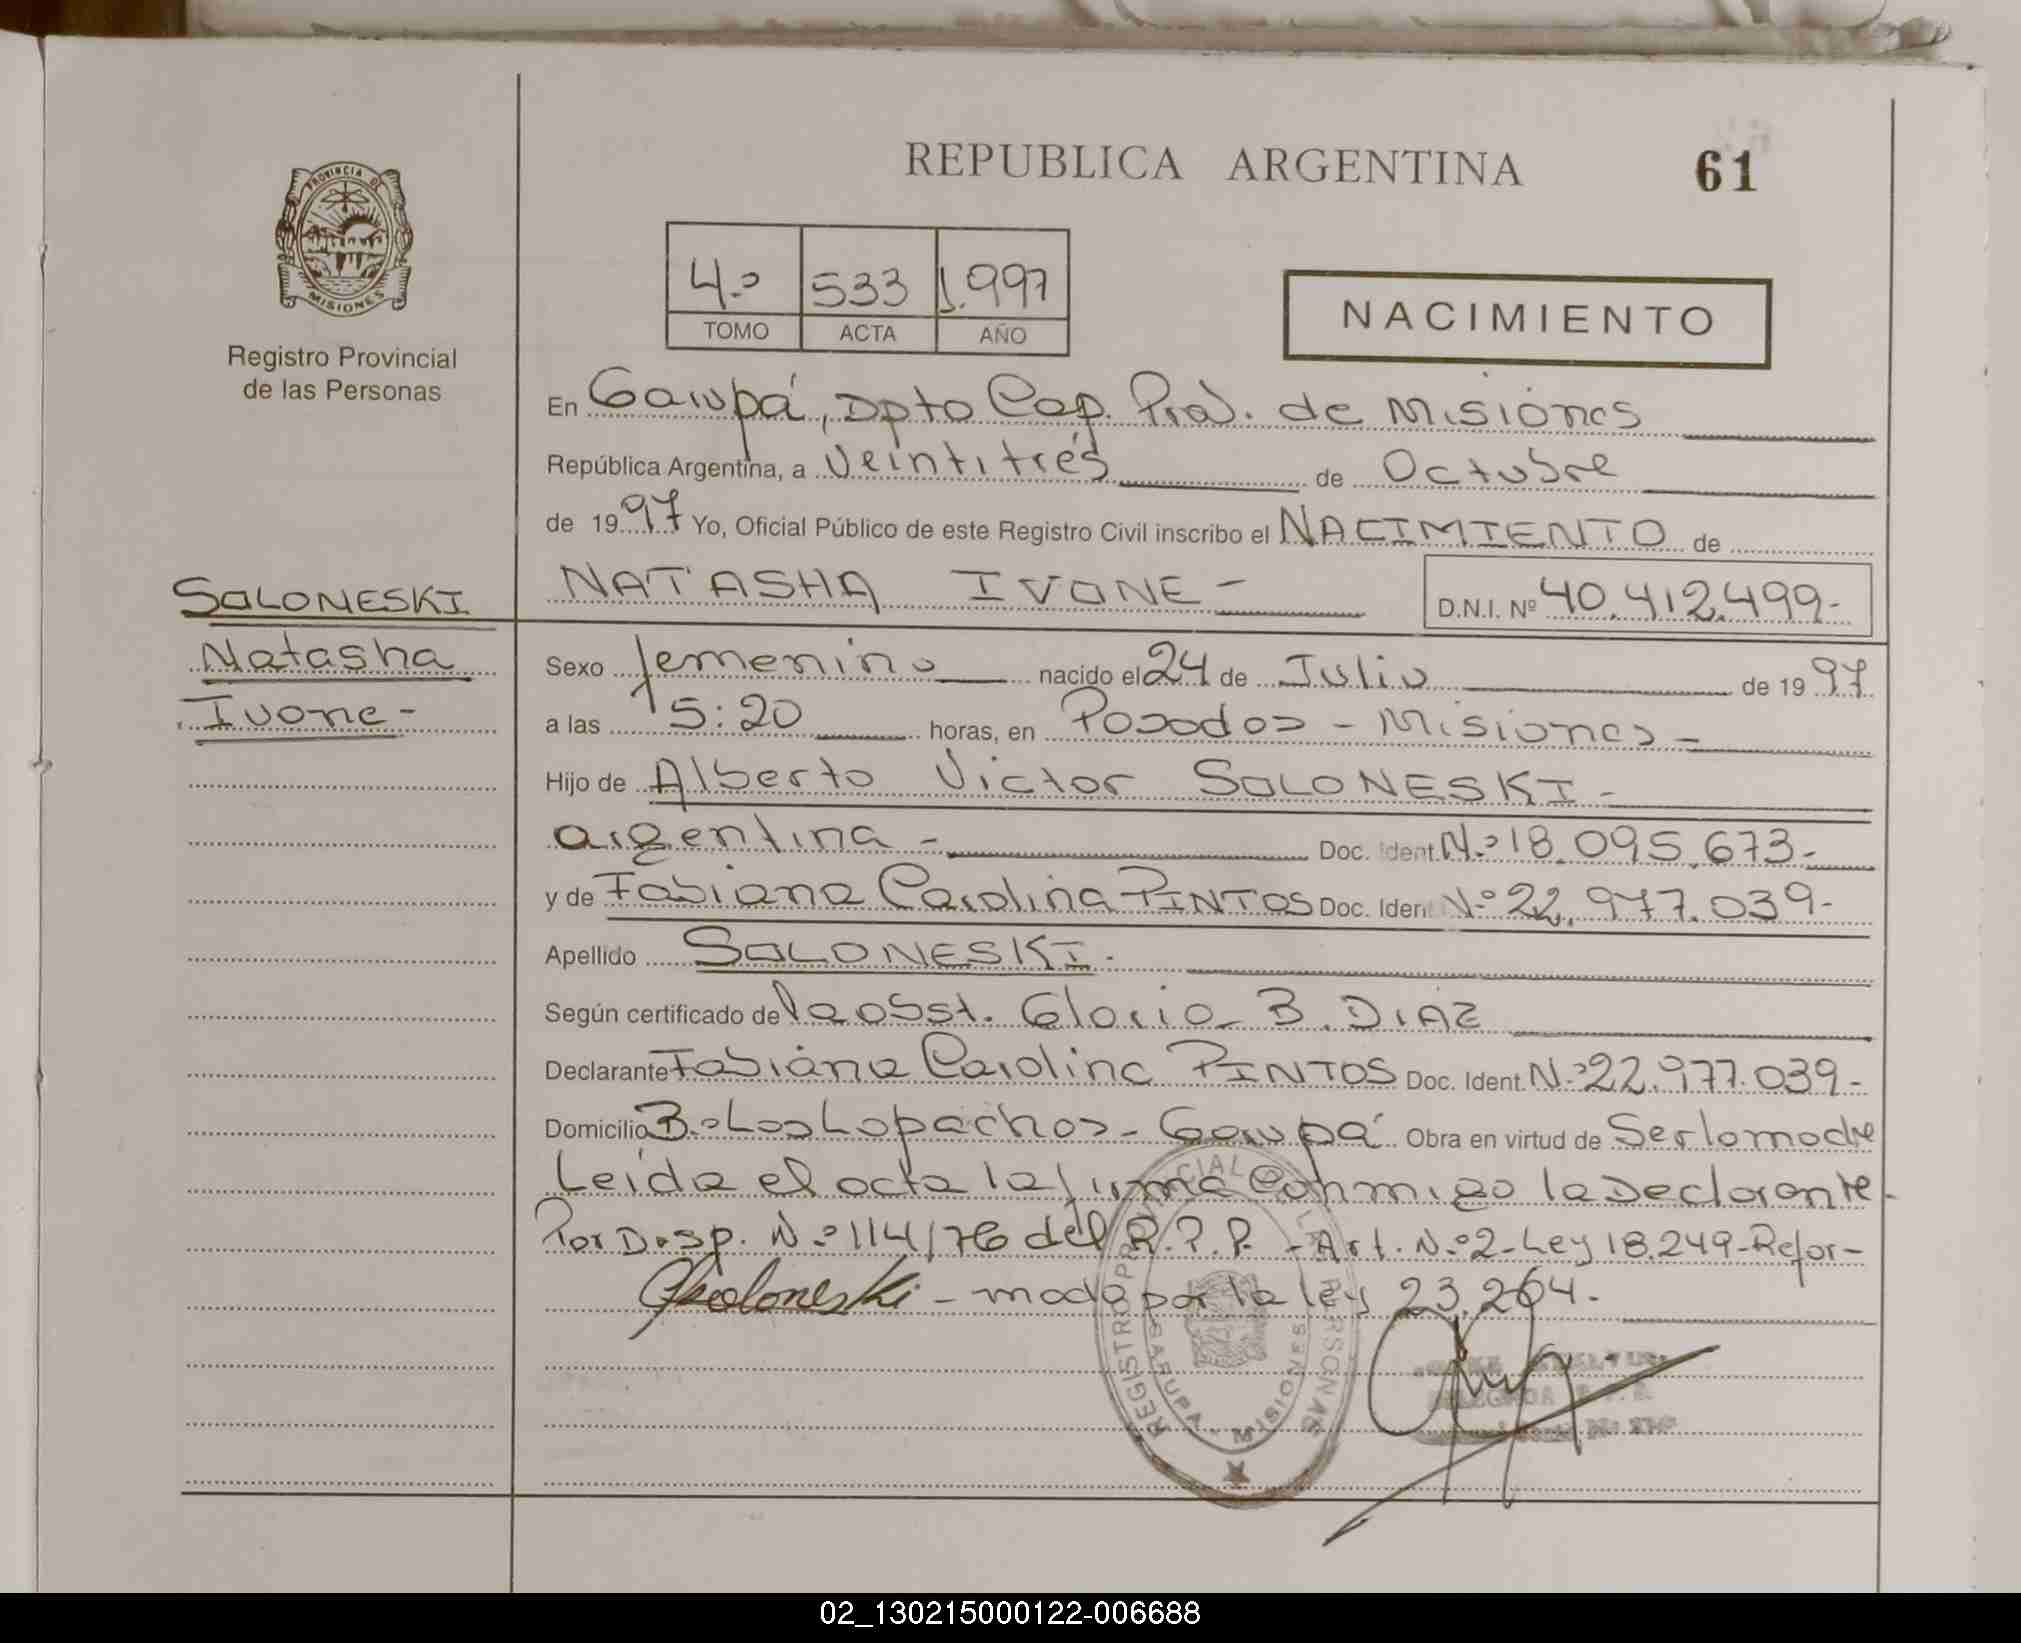 REPUBLICA ARGENTINA
61
PROVINCIA DE
MISIONES
Registro Provincial
de las Personas
4.º 533 1.997
TOMO ACTA AÑO
NACIMIENTO
En Garupá, Dpto Cap. Pcia. de Misiones
República Argentina, a Veintitrés de Octubre
de 1997 Yo, Oficial Público de este Registro Civil inscribo el NACIMIENTO de
SOLONESKI
Natasha
Ivone -
NATASHA IVONE - D.N.I. Nº 40.412.499-
Sexo femenino nacido el 24 de Julio de 1997
a las 15:20 horas, en Posadas - Misiones -
Hijo de Alberto Victor SOLONESKI -
argentina - Doc. Ident. N.º 18.095.673-
y de Fabiana Carolina PINTOS Doc. Ident. N.º 22.977.039-
Apellido SOLONESKI.
Según certificado de la obst. Gloria B. DIAZ
Declarante Fabiana Carolina PINTOS Doc. Ident. N.º 22.977.039-
Domicilio B.º Los Lapachos - Garupá Obra en virtud de Ser la madre
Leida el acta la firma conmigo la Declarante.
Por Disp. N.º 114/76 del R.P.P. - Art. N.º 2 - Ley 18.249 - Refor-
Soloneski - mada por la ley 23.264.
REGISTRO PROVINCIAL DE LAS PERSONAS
GARUPA - MISIONES
02_130215000122-006688